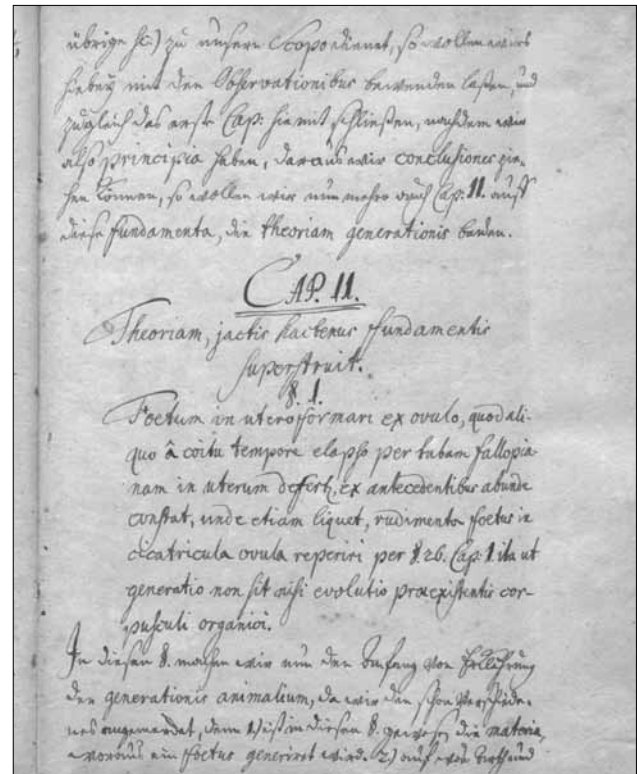 übrige pp.) zu unserm Scopo dienet, so wollen wirs
hiebey mit den Observationibus bewenden laßen, und
zugleich das erste Cap: hiemit schließen, nachdem wir
also principia haben, daraus wir conclusiones zie-
hen können, so wollen wir nun mehro auch Cap. II. auff
diese fundamenta, die theoriam generationis bauen.
CAP. II.
Theoriam, jactis hactenus fundamentis
superstruit.
§. 1.
Foetum in utero formari ex ovulo, quod ali-
quo â coitu tempore elapso per tubam fallopia-
nam in uterum defertur, ex antecedentibus abunde
constat, unde etiam liquet, rudimenta foetus in
cicatricula ovula reperiri per §. 26. Cap. I. ita ut
generatio non sit nisi evolutio praexistentis cor-
pusculi organici.
In diesen §. machen wir nun den Anfang von Erklährung
der generationis animalium, da wir den schon verschiede-
nes angemerket, denn 1) ist in diesen §. gewesen die materia,
woraus ein foetus generiret wird. 2) auf was